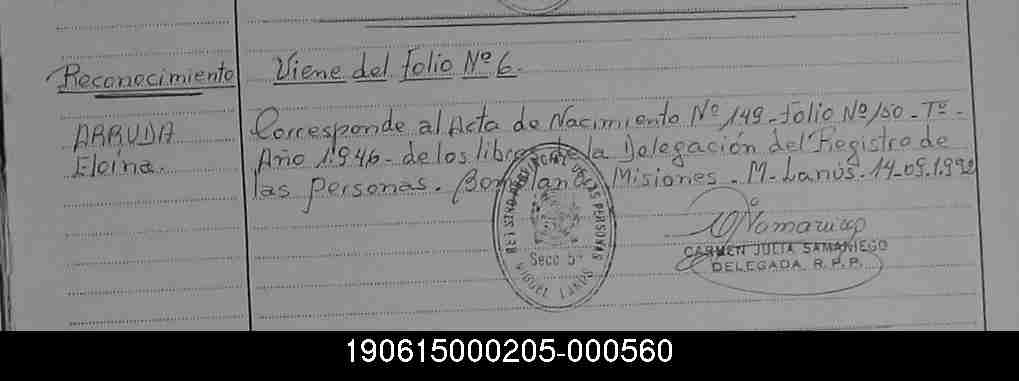 Reconocimiento
ARRUDA
Eloina.
Viene del folio Nº 6.
Corresponde al Acta de Nacimiento Nº 149 - folio Nº 150 - Tº -
Año 1.946 - de los libros de la Delegación del Registro de
las Personas. Bompland Misiones. M. Lanús. 14-05.1.992
CARMEN JULIA SAMANIEGO
DELEGADA R.P.P.
REGISTRO PROVINCIAL DE LAS PERSONAS
Secc
190615000205-000560